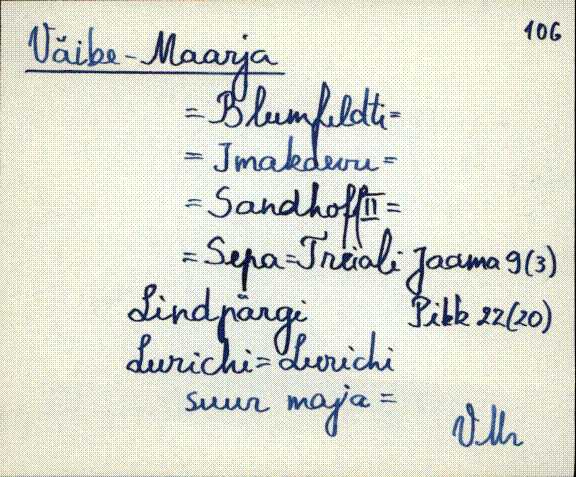 106
Väike-Maarja
= Blumfeldti =
= Imakdevu =
= Sandhoff II =
= Sepa = Treiali Jaama 9 (3)
Lindpärgi Pikk 22 (20)
Lurichi = Lurichi
suur maja =
VMr